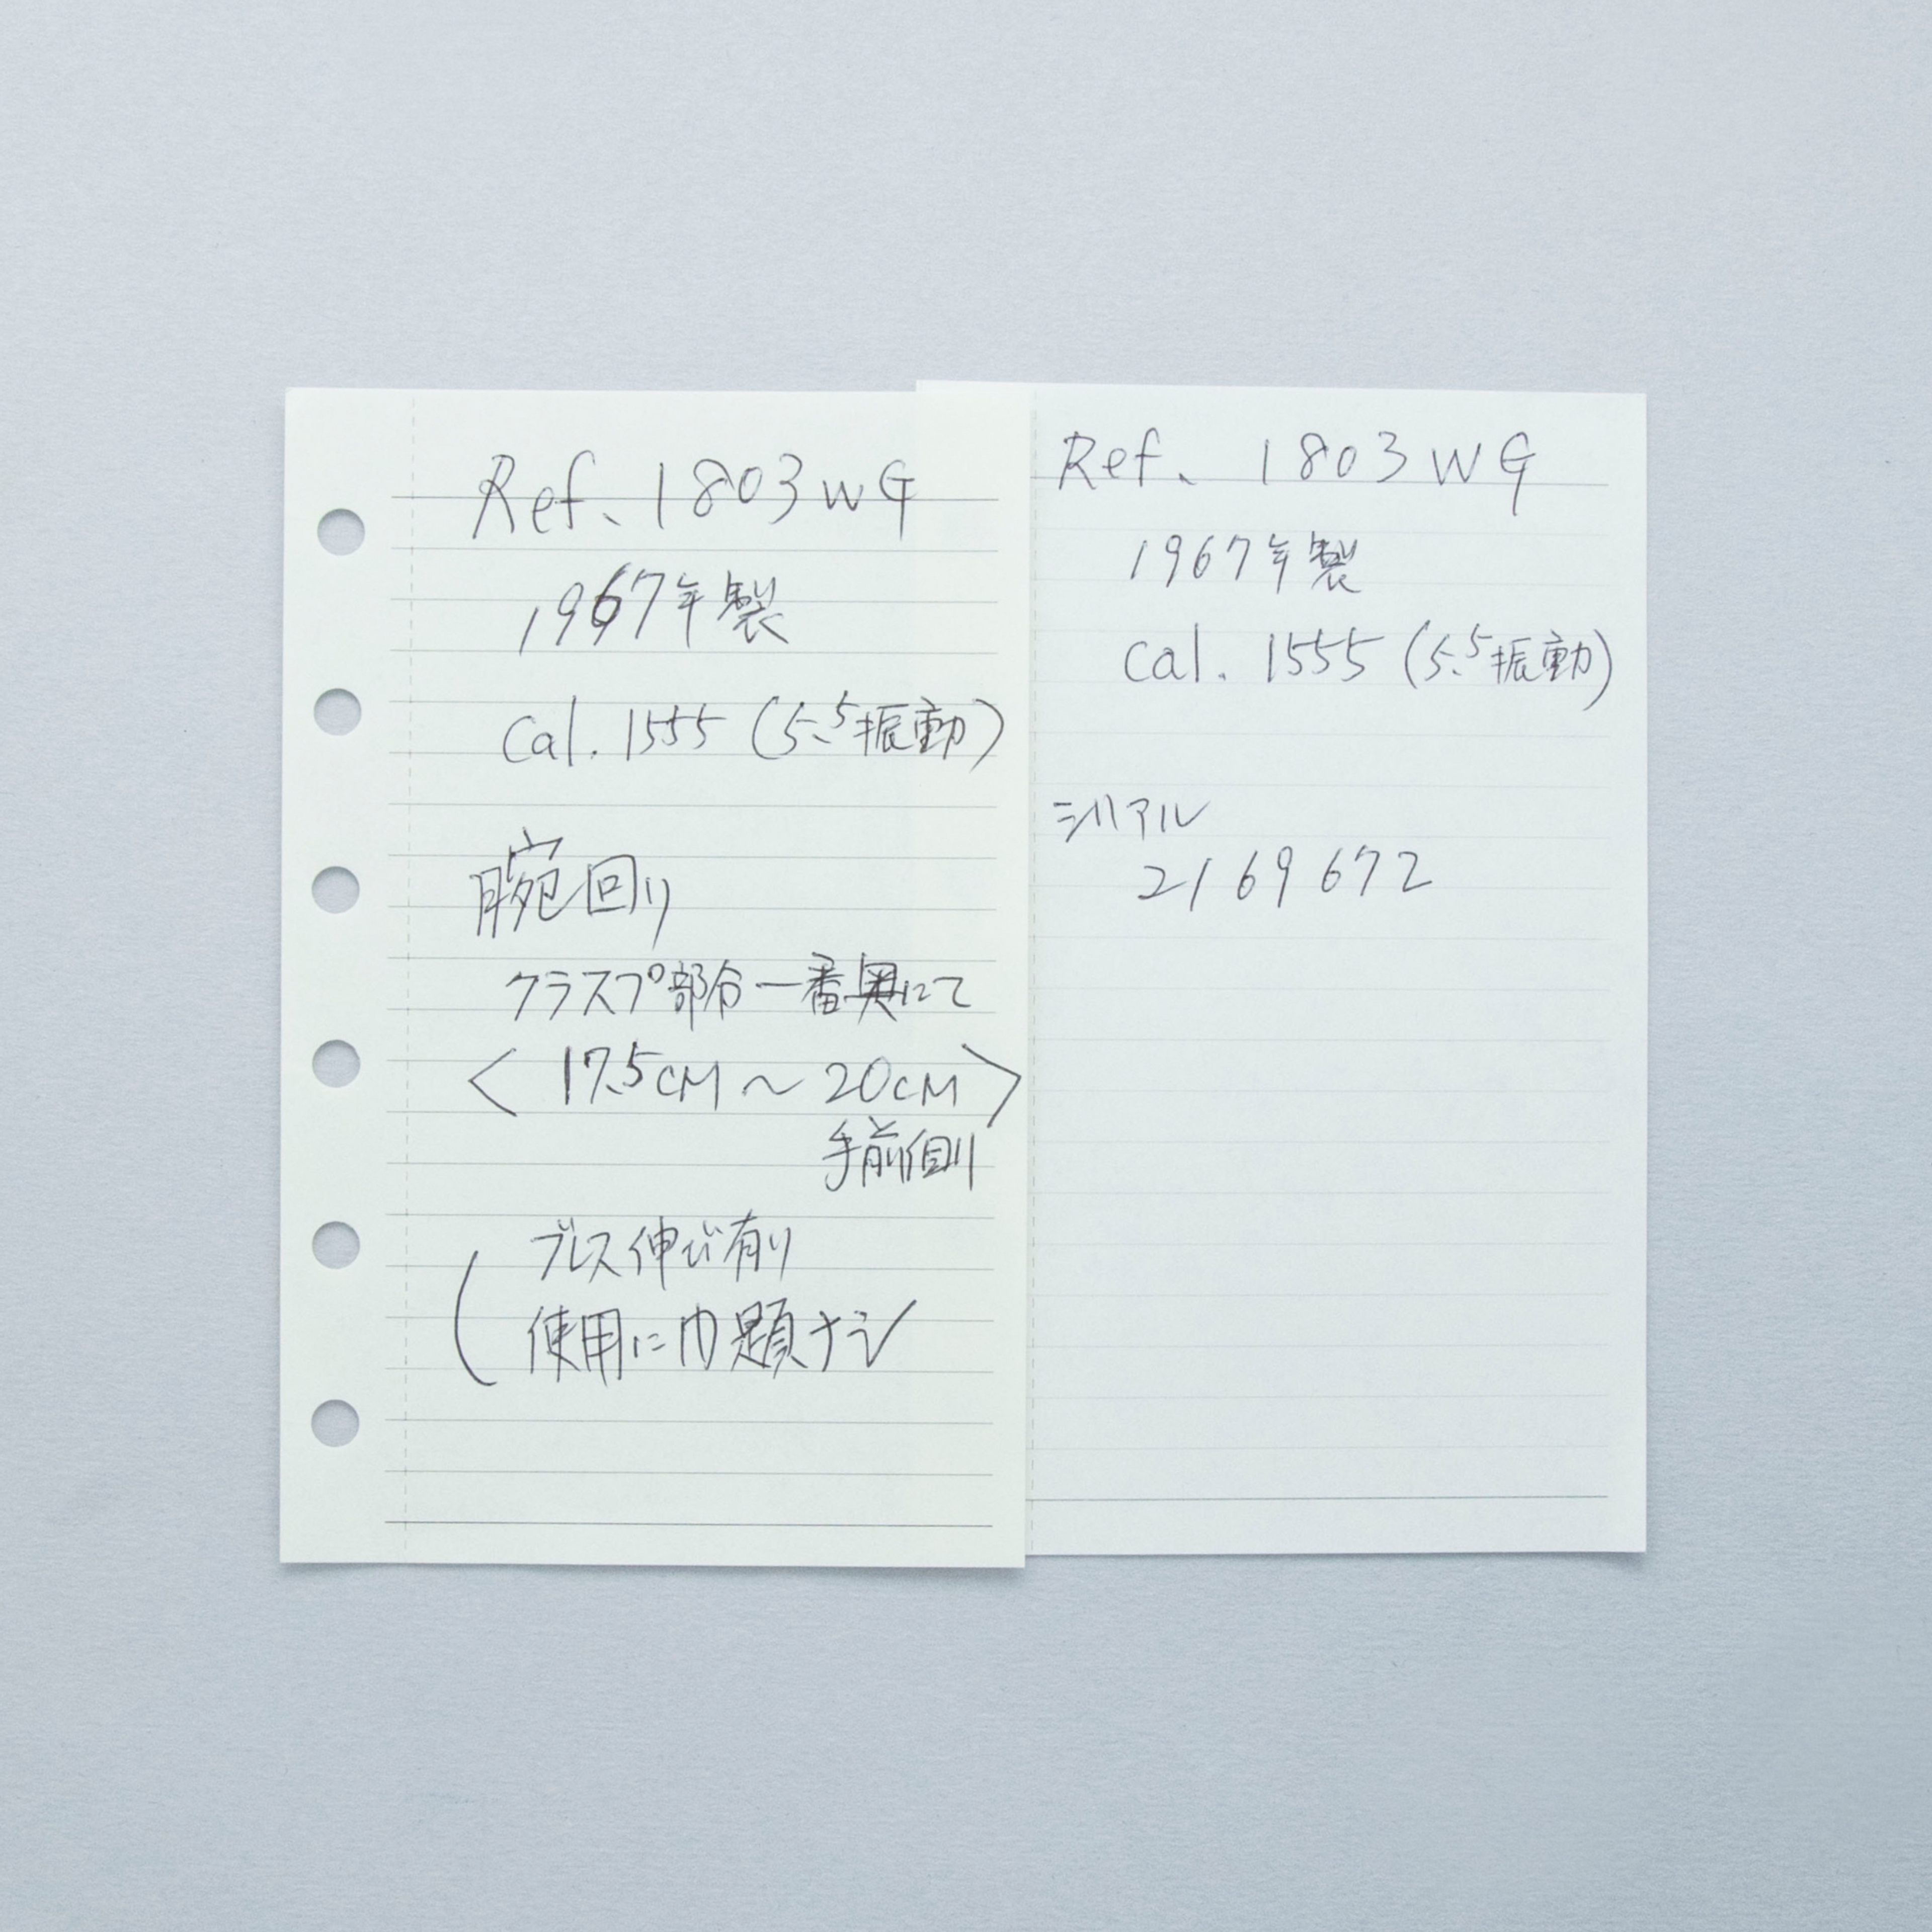 Ref. 1803WG
1967年製
cal. 1555 (5.5振動)
腕回り
クラスプ部分一番奥にて
〈 17.5CM ～ 20CM 〉
手前側
ブレス伸び有り
使用に問題ナシ
Ref. 1803WG
1967年製
cal. 1555 (5.5振動)
シリアル
2169672